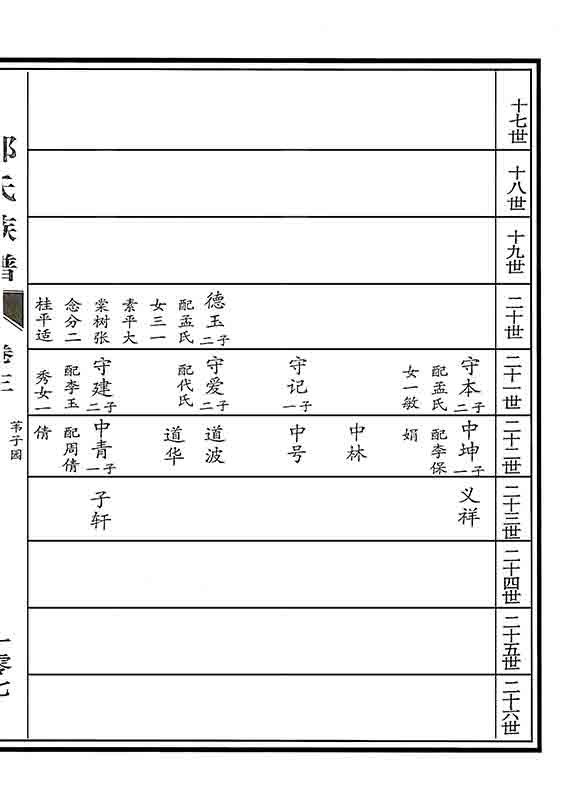 十七世
十八世
十九世
二十世
德玉二子
配孟氏
女三一
素平大
棠树张
念分二
桂平适
二十一世
守本二子
配孟氏
女一敏
守记一子
守爱二子
配代氏
守建二子
配李玉
秀女一
二十二世
中坤一子
配李保
娟
中林
中号
道波
道华
中青一子
配周倩
倩
二十三世
义祥
子轩
二十四世
二十五世
二十六世
氏族谱
卷三
第子园
一零七